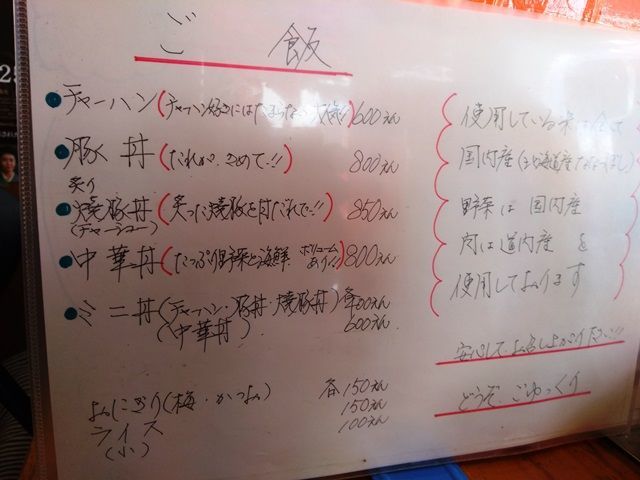 ご飯
●チャーハン(チャーハン好きにはたまらない 大盛!!) 600えん
●豚丼(たれがきめて!!) 800えん
炙り
●焼豚丼(炙った焼豚を丼だれで!!) 850えん
(チャーシュー)
●中華丼(たっぷり野菜と海鮮 ボリュームあり!!) 800えん
●ミニ丼(チャーハン・豚丼・焼豚丼) 各 えん
(中華丼) 600えん
おにぎり(梅・かつお) 各150えん
ライス 150えん
(小) 100えん
使用している米は全て
国内産(北海道産ななつぼし)
野菜は国内産
肉は道内産を
使用しております
安心してお召し上がり下さい!!
どうぞ、ごゆっくり